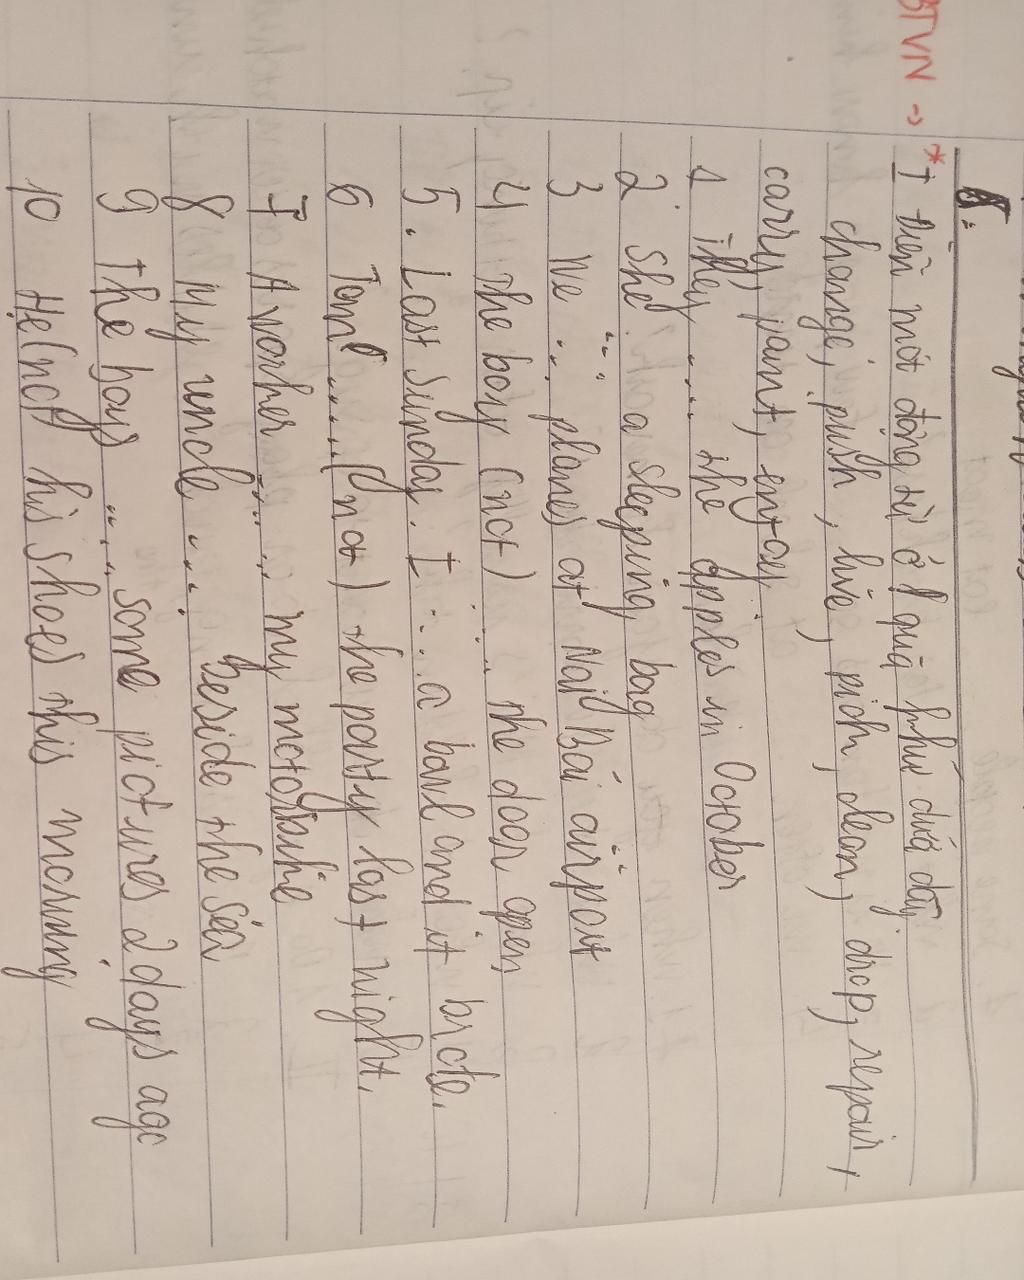 BTVN → * I điền một động từ ở quá khứ dưới đây
change, push, live, pich, clean, drop, repair,
carry, paint, enjoy
1 They .... the apples in October
2 She .... a sleeping bag
3 We .... planes at Nội Bài airport
4 The boy (not) .... the door open
5. Last sunday. I .... a bowl and it broke.
6 Tom .... (not) the party last night.
7 A worker .... my motorbike
8 My uncle .... beside the sea
9 The boys .... some pictures 2 days ago
10 He (not) his shoes this morning